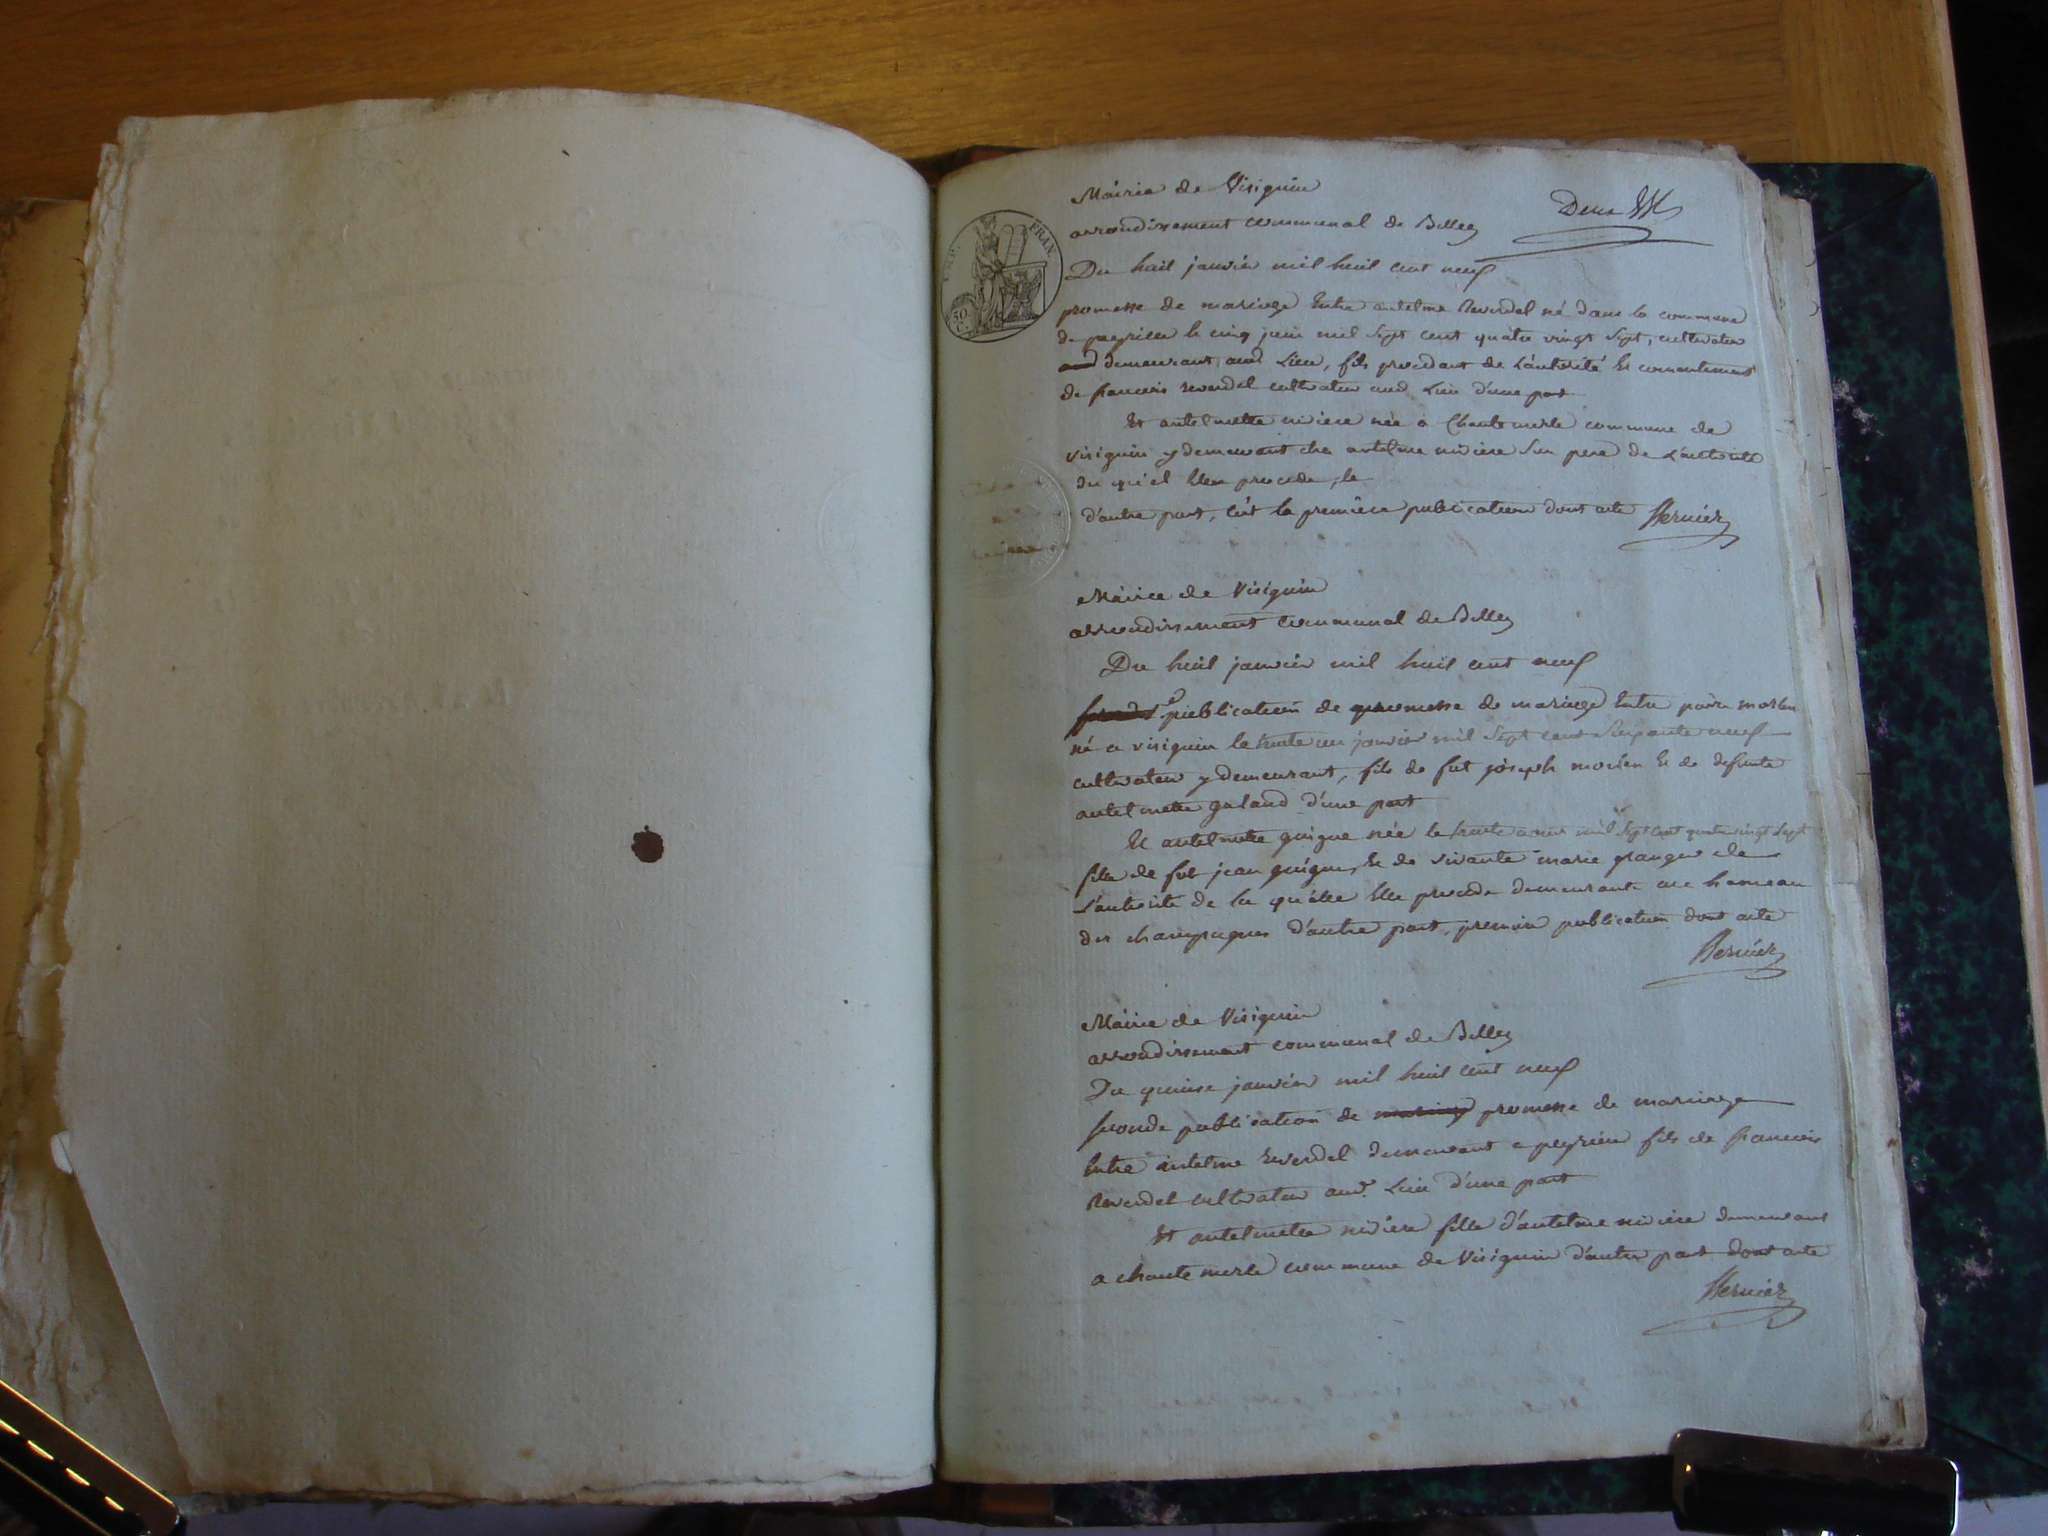 Mairie de Virignin
Deux
arrondissement communal de Belley
EMP. FRAN.
50 C.
Du huit janvier mil huit cent neuf
promesse de mariage Entre antelme Reverdel né dans la commune
de peyrieu le cinq juin mil Sept cent quatre vingt Sept, cultivateur
demeurant aud Lieu, fils procedant de L'autorité Et consentement
de francois reverdel cultivateur aud Lieu d'une part
Et antelmette riviere née a Chantemerle commune de
virignin y demeurant chez antelme riviere Son pere de L'autorité
du qu'el Elle procede, le
d'autre part, C'est la premiere publication dont acte Bernier
Mairie de Virignin
arrondissement communal de Belley
Du huit janvier mil huit cent neuf
publication de promesse de mariage Entre pierre
né a virignin le trente un janvier mil Sept cent Soixante neuf
cultivateur y demeurant, fils de fut joseph Et de defunte
antelmette galand d'une part
Et antelmette guigue née le trente mil Sept Cent quatre vingt Sept
fille de fut jean guigue, Et de vivante marie granger de
L'autorité de la qu'elle Elle procede demeurante au hameau
des champagnes d'autre part, premiere publication dont acte
Bernier
Mairie de Virignin
arrondissement communal de Belley
Du quinze janvier mil huit cent neuf
seconde publication de mariage promesse de mariage
Entre antelme Reverdel demeurant a peyrieu fils de francois
Reverdel cultivateur aud. Lieu d'une part
Et antelmette riviere fille d'antelme riviere demeurant
a chante merle commune de Virignin d'autre part dont acte
Bernier